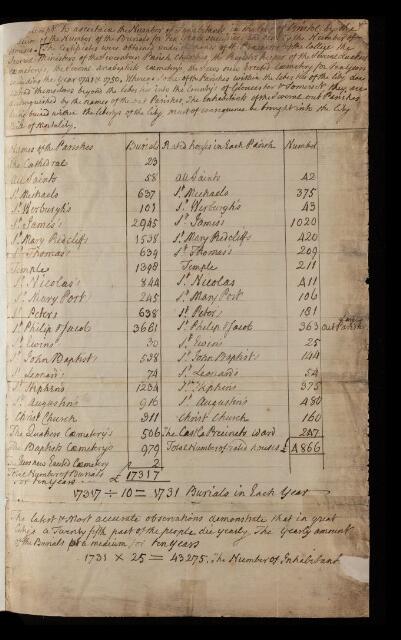 Attempt to ascertain the Number of Inhabitants in the City of Bristol, by the
Medium of the Number of the Burials for Ten Years and from the Number of
Houses. The Certificates were obtained under the names of the of the College the
Several Ministers of the Seventeen Parish Churches the of the Several Quakers
Cemeterys, the Several Anabaptists Cemeterys the Jews and Cemetery for Ten Years
including the Year 1741 & 1750. Whereas Some of the Parishes within the liberties of the City doe
extend themselves beyond the liberties into the Countys of Gloucester & Somerset they are
distinguished by the names of the out Parishes. The Inhabitants of the Several out Parishes
being buried within the libertys of the City must of consequence be brought into the City
Bills of Mortality.
Names of the Parishes Burials Rated houses in Each Parish Number
The Cathedral 23
All Saints 58 All Saints 42
St. Michaels 637 St. Michaels 375
St. Werburgh's 101 St. Werburgh's 43
St. James's 2945 St. James's 1020
St. Mary Redcliffs 1538 St. Mary Redcliffs 420
St. Thomas's 634 St. Thomas's 209
Temple 1398 Temple 211
St. Nicolas's 844 St. Nicolas 411
St. Mary Port 245 St. Mary Port 106
St. Peters 638 St. Peters 181
St. Philip & Jacob 3661 St. Philip & Jacob 363 out Parish
St. Ewins 30 St. Ewins 25
St. John Baptist's 538 St. John Baptist's 144
St. Leonards 74 St. Leonards 54
St. Stephens 1234 St. Stephens 375
St. Augustin's 916 St. Augustin's 480
Christ Church 311 Christ Church 160
The Quakers Cæmetery's 506 The Castle Precincts Ward 247
The Baptists Cæmetery's 979 Total Number of rated houses £ 4866
The Jews Cæmetery 2
The Number of Burials
for ten years 17317
17317 ÷ 10 = 1731 Burials in Each Year
The latest & Most accurate observations demonstrate that in great
Citys a Twenty fifth part of the people die yearly. The yearly amount
of the Burials at a medium for ten years
1731 × 25 = 43275. The Number of Inhabitants